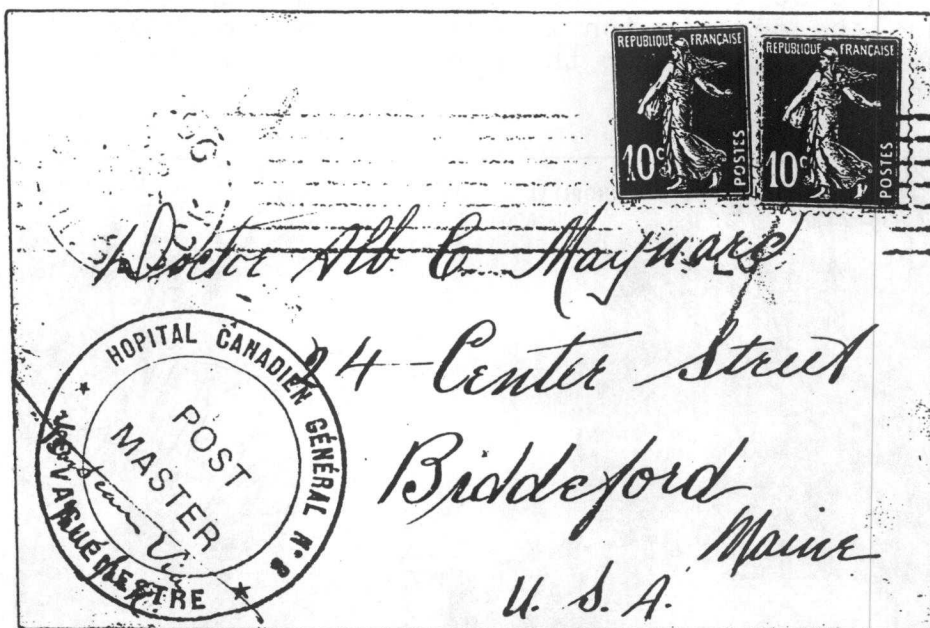 REPUBLIQUE FRANÇAISE
10c POSTES
REPUBLIQUE FRANÇAISE
10c POSTES
Doctor Alb C. Maynard
24 - Center Street
Biddeford
Maine
U. S. A.
HOPITAL CANADIEN GÉNÉRAL No 8
POST
MASTER
VAGUEMESTRE